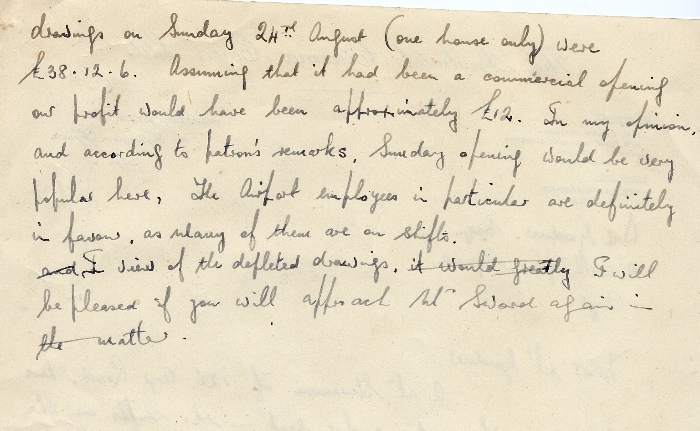 drawings on Sunday 24th August (one house only) were
£38·12·6. Assuming that it had been a commercial opening
our profit would have been approximately £12. In my opinion,
and according to patron's remarks, Sunday opening would be very
popular here, The Airport employees in particular are definitely
in favour, as many of them are on shifts.
and I view of the depleted drawings, it would greatly I will
be pleased if you will approach Mr Sword again in
the matter.